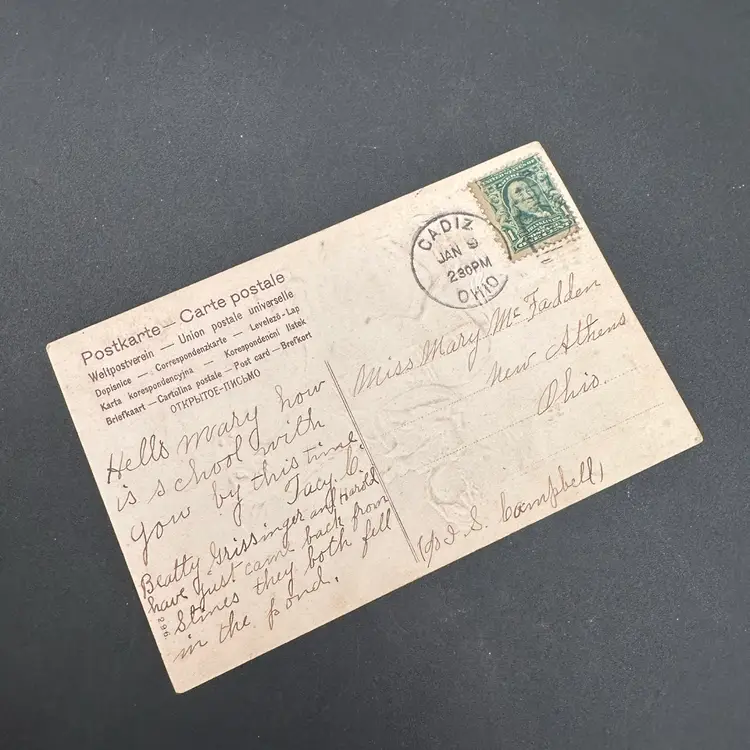 Postkarte — Carte postale
Weltpostverein — Union postale universelle
Dopisnice — Correspondenzkarte — Levelező-Lap
Karta korespondencyjna — Korespondenční lístek
Briefkaart — Cartolina postale — Post card — Brefkort
ОТКРЫТОЕ-ПИСЬМО
Hello Mary how
is school with
you by this time.
Tacy C.
Beatty Grissinger and Harold
have just came back from
Slines they both fell
in the pond.
296
CADIZ
JAN 9
230PM
OHIO
1
Miss Mary McFadden
New Athens
Ohio.
c/o I. S. Campbell,